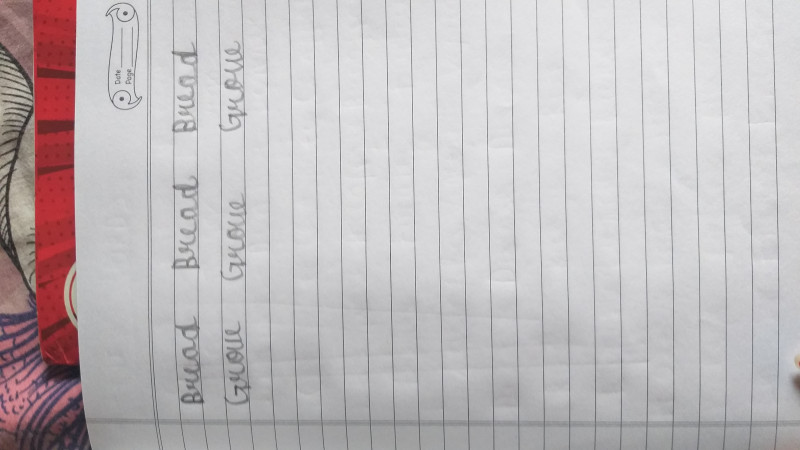 Date
Page
Bread Bread Bread
Grow Grow Grow